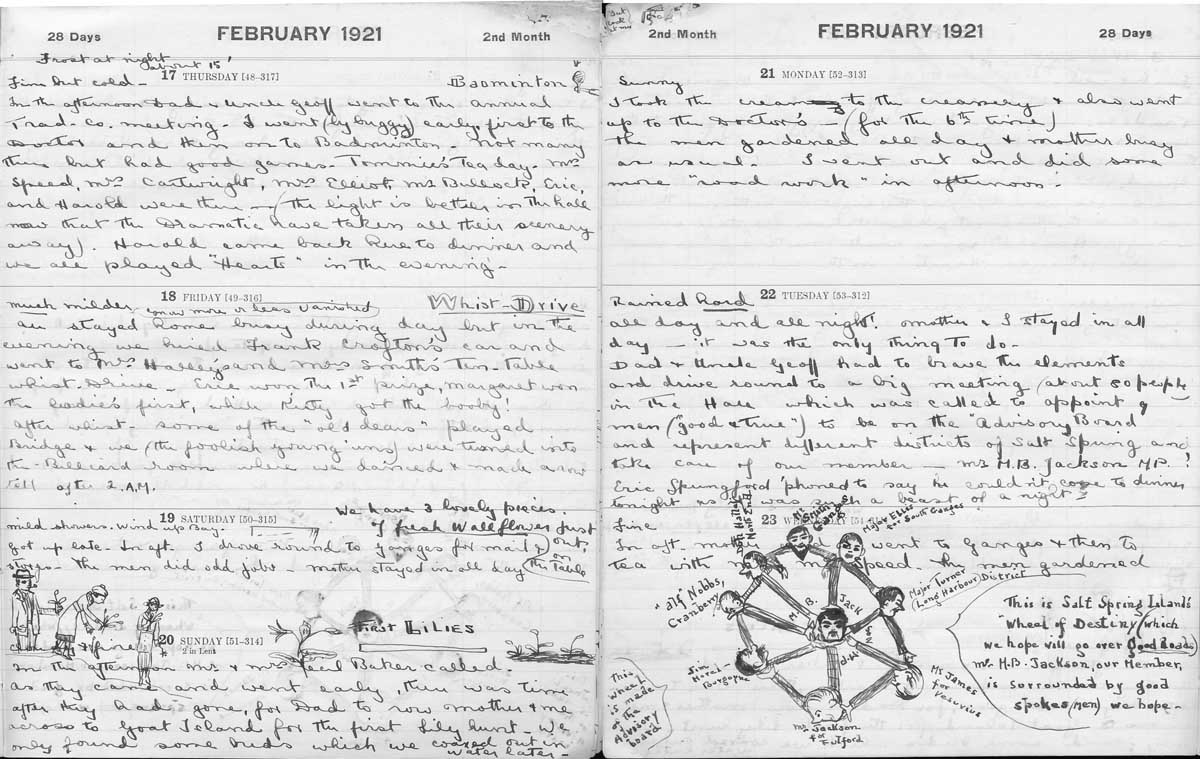 28 Days FEBRUARY 1921 2nd Month
Frost at night about 15°!
17 THURSDAY [48-317]
Fine but cold - Badminton
In the afternoon Dad & Uncle Geoff went to the annual
Trad-Co. meeting. I went (by buggy) early first to the
Doctor and then on to Badminton. Not many
there but had good games. Tommie's Tea day. Mrs
Speed, Mrs Cartwright, Mrs Elliot, Mr Bullock, Eric,
and Harold were there - (the light is better in the hall
now that the Dramatic have taken all their scenery
away). Harold came back here to dinner and
we all played "Hearts" in the evening-
18 FRIDAY [49-316]
much milder (snow more or less vanished) Whist-Drive
all stayed home busy during day but in the
evening we hired Frank Crofton's car and
went to Mrs Halley's and Mrs Smith's Ten-Table
Whist-Drive - Eric won the 1st prize, Margaret won
the ladie's first, while got the booby!
after whist - some of the "old dears" played
Bridge & we (the foolish young 'uns) were turned into
the Billiard room where we danced & made a row
till after 2 A.M.
We have 3 lovely pieces
19 SATURDAY [50-315]
of fresh Wallflower just out, on the Table
mild showers. Wind
got up late. In aft. I drove round to Ganges for mail &
stores - The men did odd jobs - mother stayed in all day
First LILIES
20 SUNDAY [51-314]
2 in Lent
& fine
In the afternoon Mr & Mrs Baker called.
as they came and went early, there was time
after they had gone, for Dad to row mother & me
across to Goat Island for the first Lily hunt - We
only found some buds which we coaxed out in
water later-
2nd Month FEBRUARY 1921 28 Days
21 MONDAY [52-313]
Sunny
I took the cream to the creamery & also went
up to the Doctor's - (for the 6th time)
The men gardened all day & mother busy
as usual. I went out and did some
more "road work" in afternoon.
22 TUESDAY [53-312]
Rained hard
all day and all night! Mother & I stayed in all
day - it was the only thing to do-
Dad & Uncle Geoff had to brave the elements
and drive round to a big meeting (about 80 people
in the Hall which was called to appoint 9
men ("good & true") to be on the "Advisory Board"
and represent different districts of Salt Spring and
take care of our member - Mr M.B. Jackson MP.!
Eric Springford 'phoned to say he couldn't come to dinner
tonight as it was such a beast of a night
23
Fine
In aft. went to Ganges & then to
tea with Speed. The men gardened
North End
Ganges
Major Elliot for South Ganges
Major Turner (Long Harbour) District
"alf" Nobbs, Cranberry
M.B. Jackson
Jim Horel Burgoyne
Mr James for Vesuvius
Mr Jackson for Fulford
This wheel is made of the Advisory board
This is Salt Spring Island's
"Wheel of Destiny" (which
we hope will go over Good Roads)
Mr M.B. Jackson, our Member,
is surrounded by good
spokes (men) we hope-